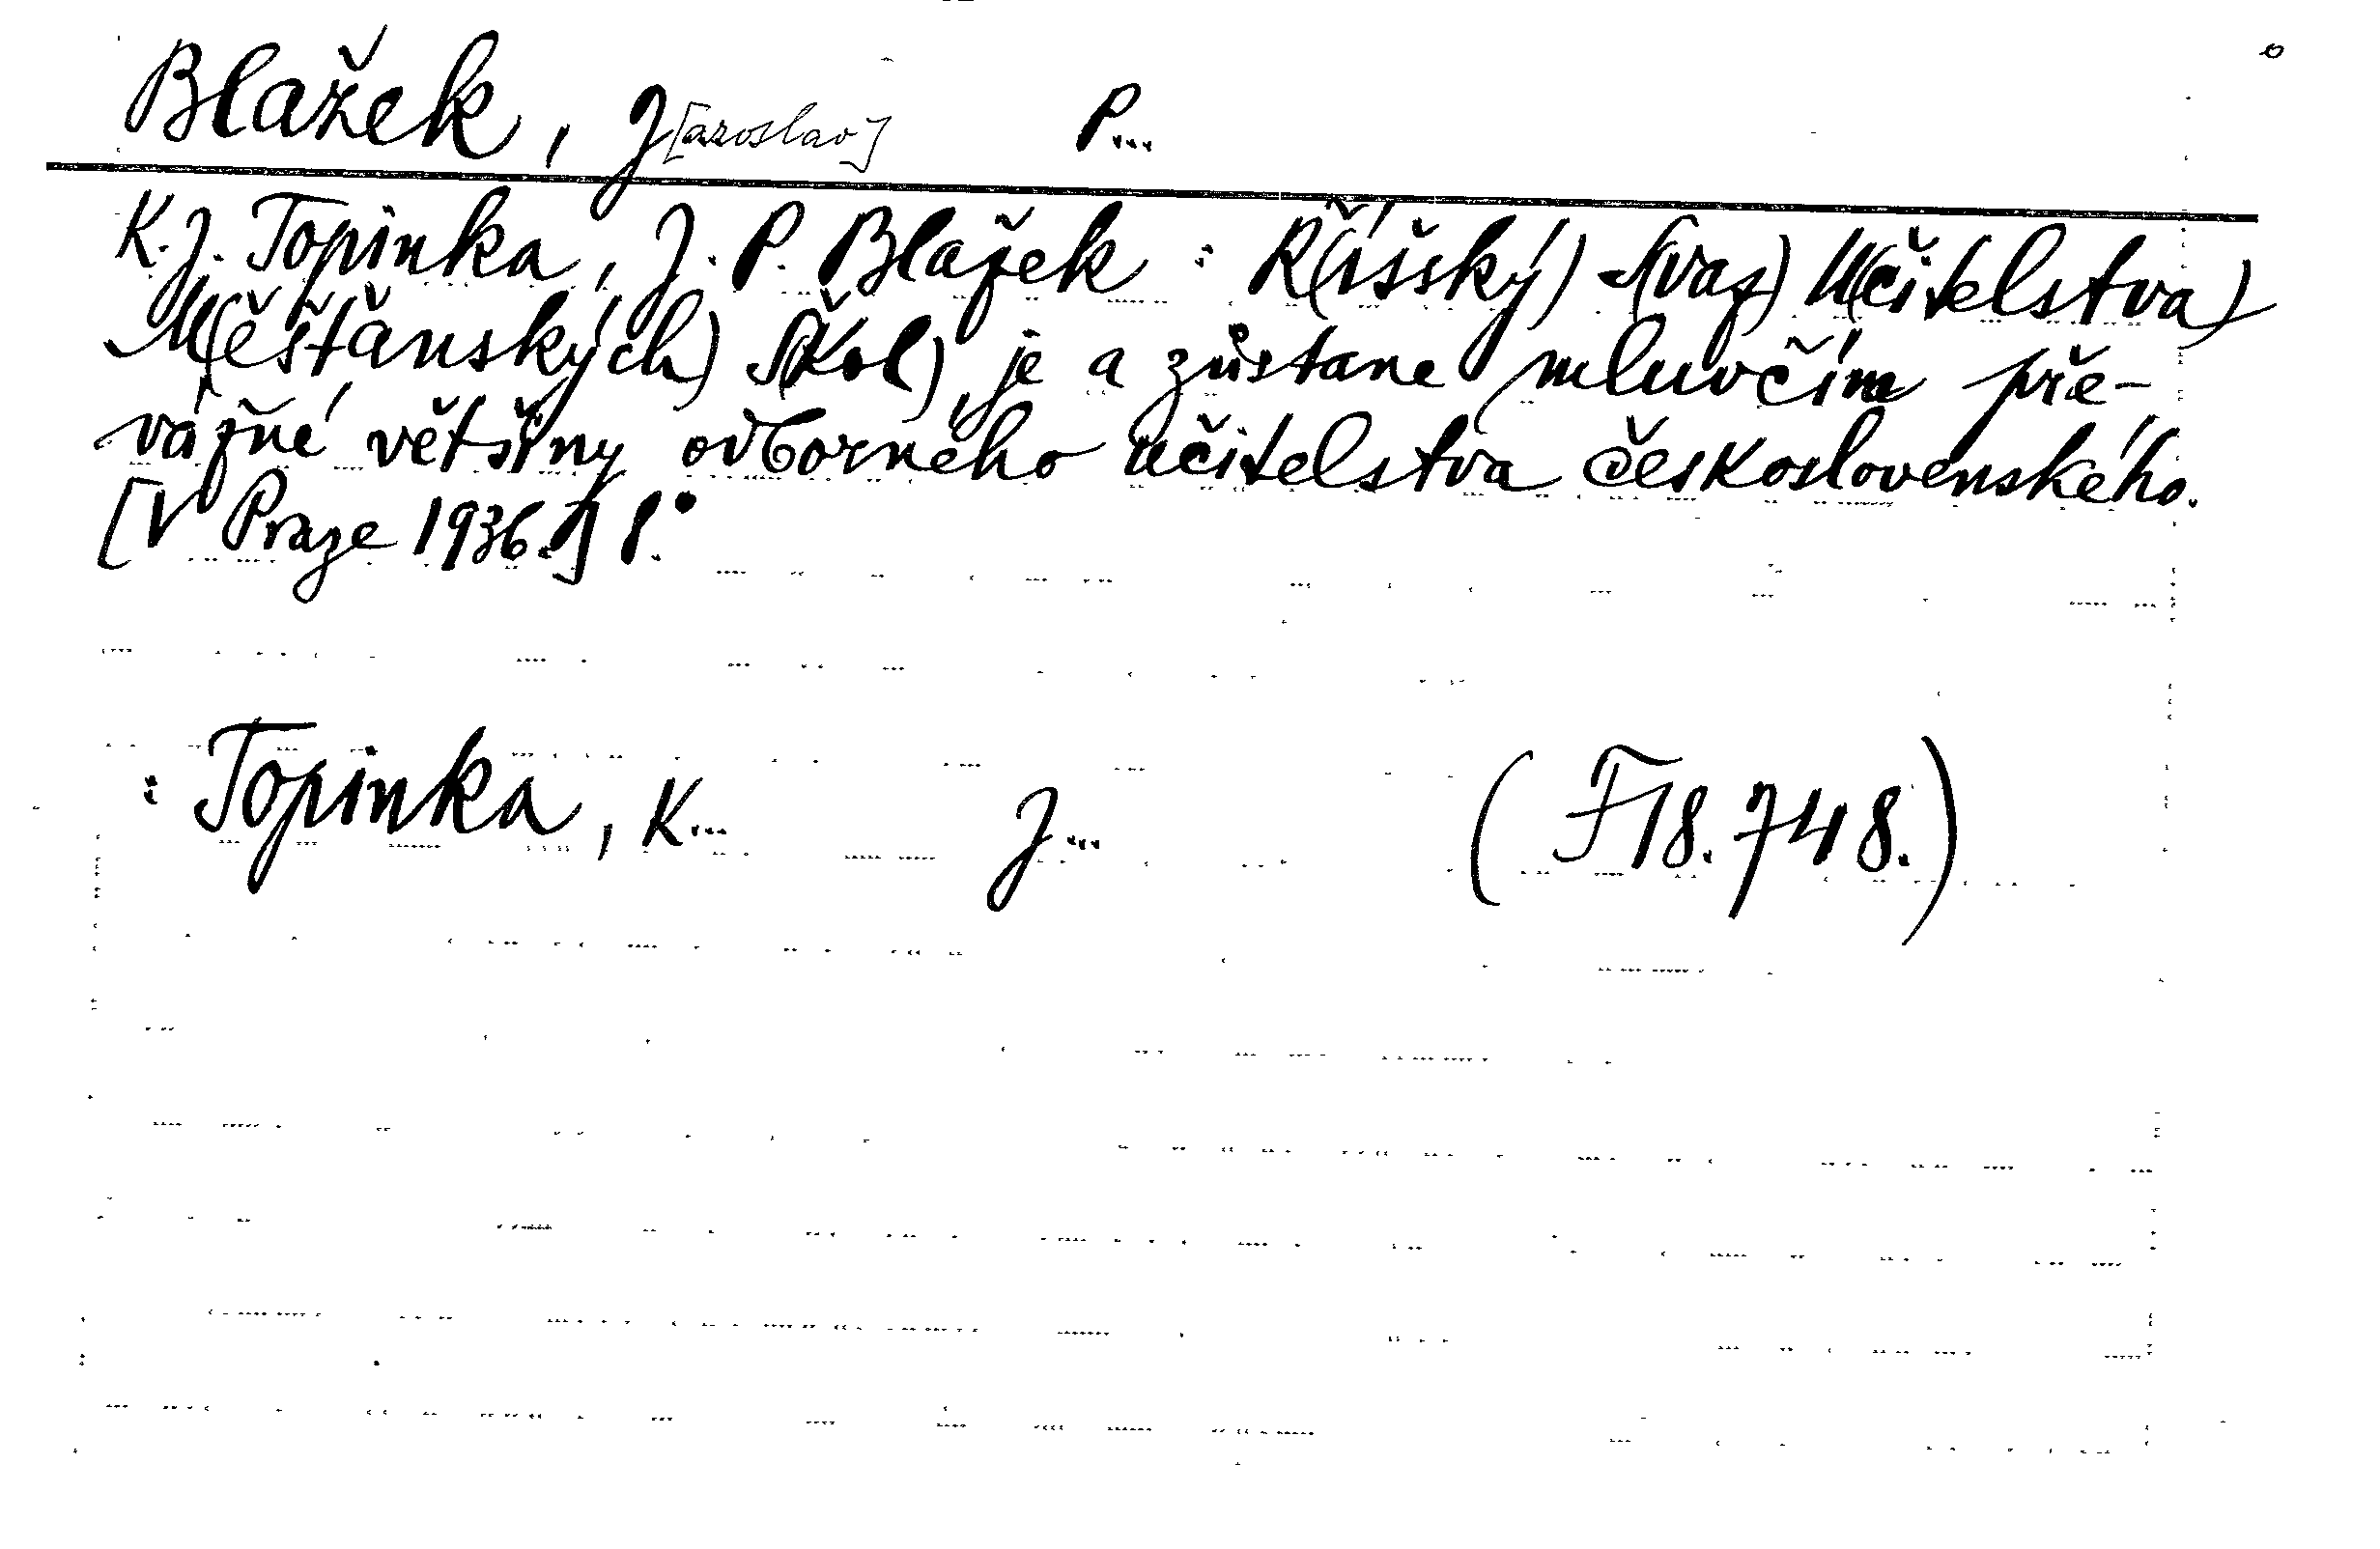 Blažek, J[aroslav] P...
K. J. Topinka, J. P. Blažek : Ř(íšský) S(vaz) U(čitelstva)
M(ěšťanských) Š(kol) je a zůstane mluvčím pře-
vážné většiny odborného učitelstva československého.
[V Praze 1936.] 8°.
: Topinka, K... J... (F 18.748.)